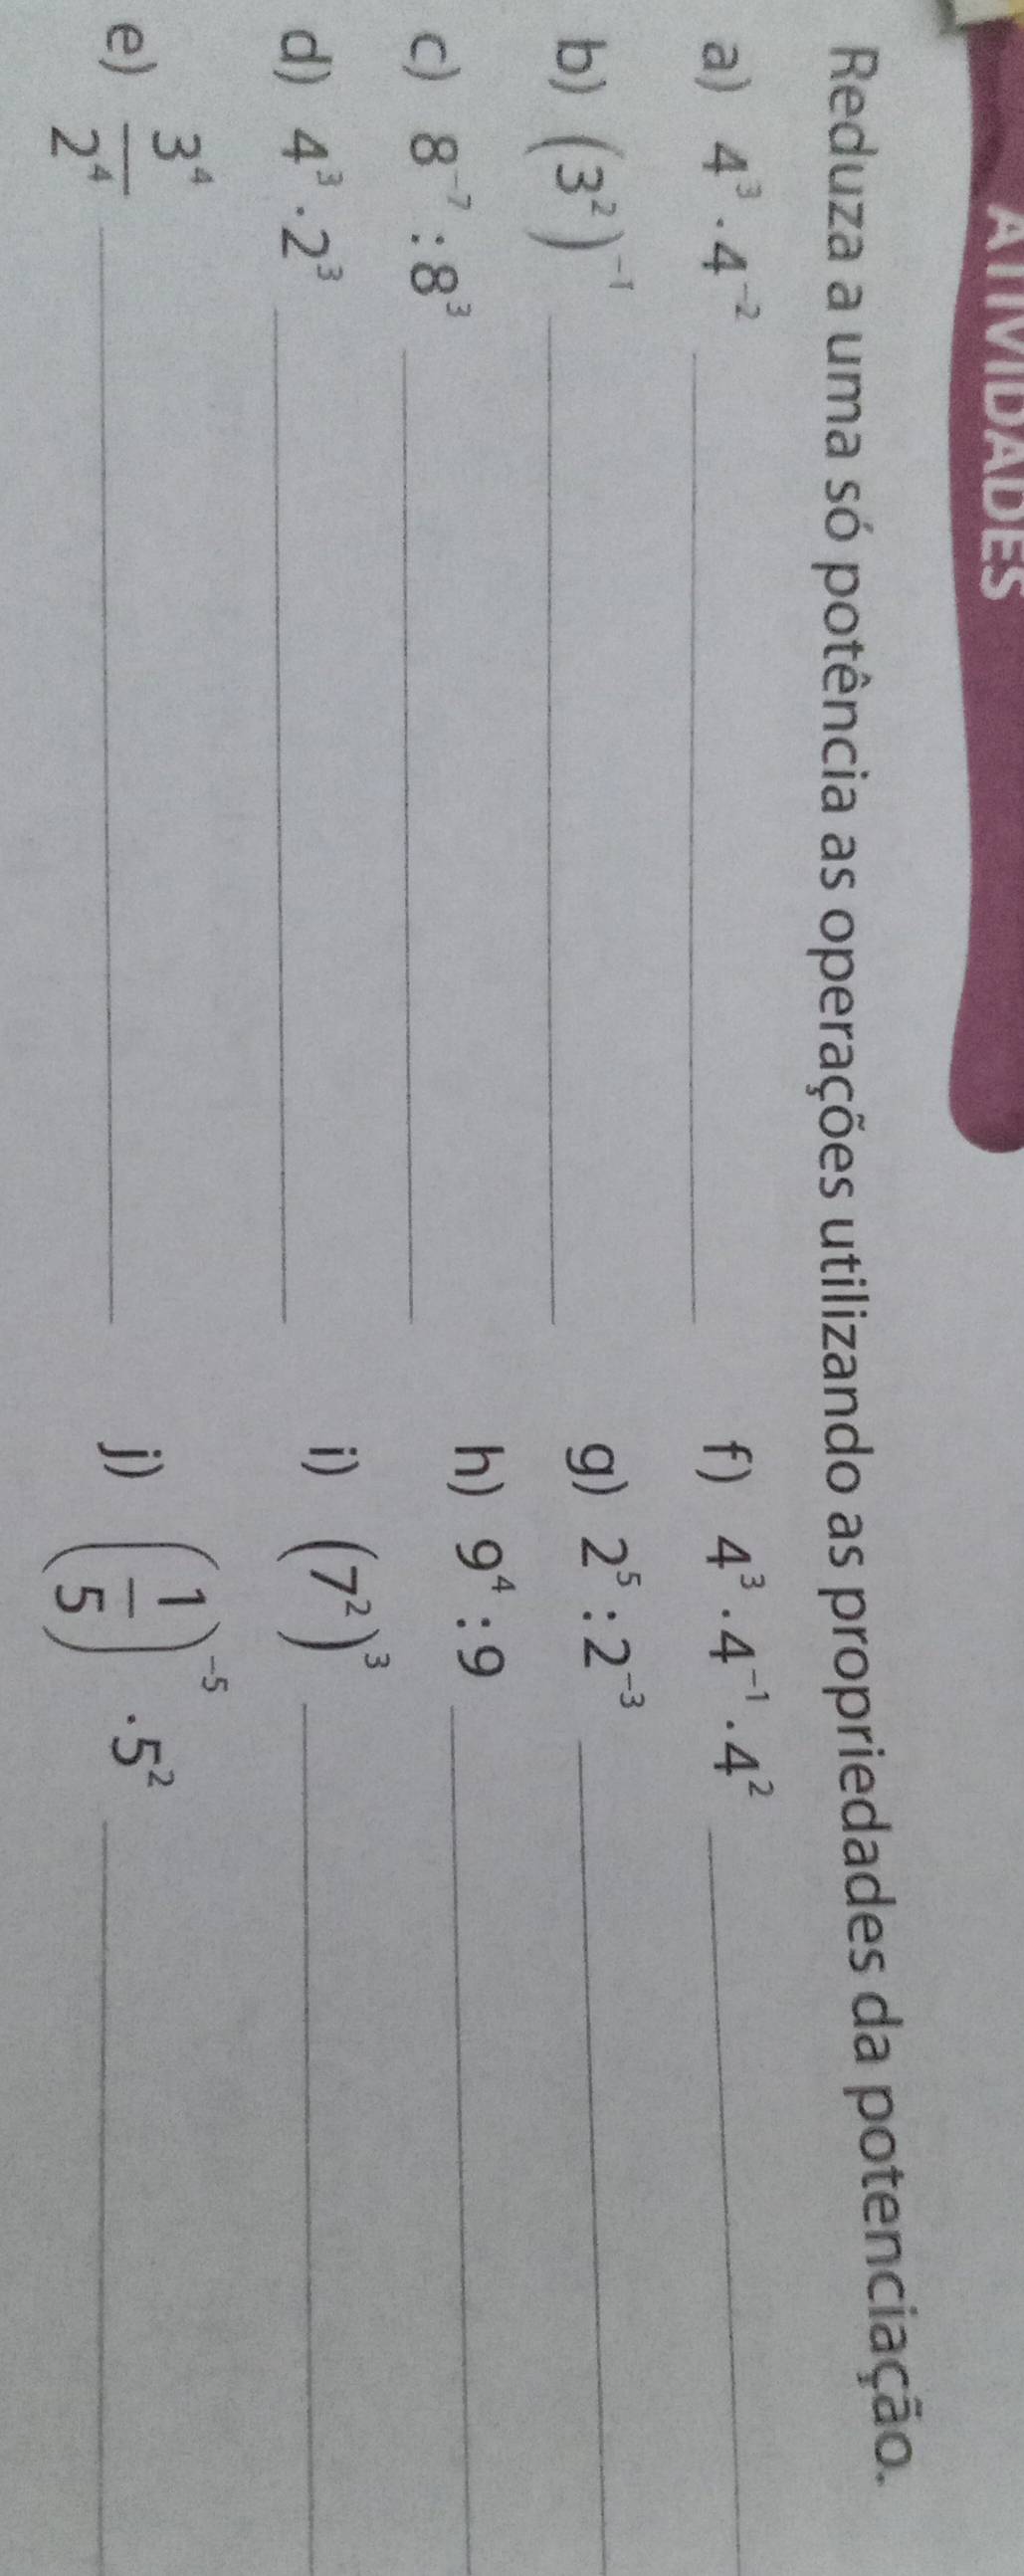 ATIVIDADES
Reduza a uma só potência as operações utilizando as propriedades da potenciação.
a) 4³ · 4⁻²
b) (3²)⁻¹
c) 8⁻⁷ : 8³
d) 4³ · 2³
e) 3⁴/2⁴
f) 4³ · 4⁻¹ · 4²
g) 2⁵ : 2⁻³
h) 9⁴ : 9
i) (7²)³
j) (1/5)⁻⁵ · 5²